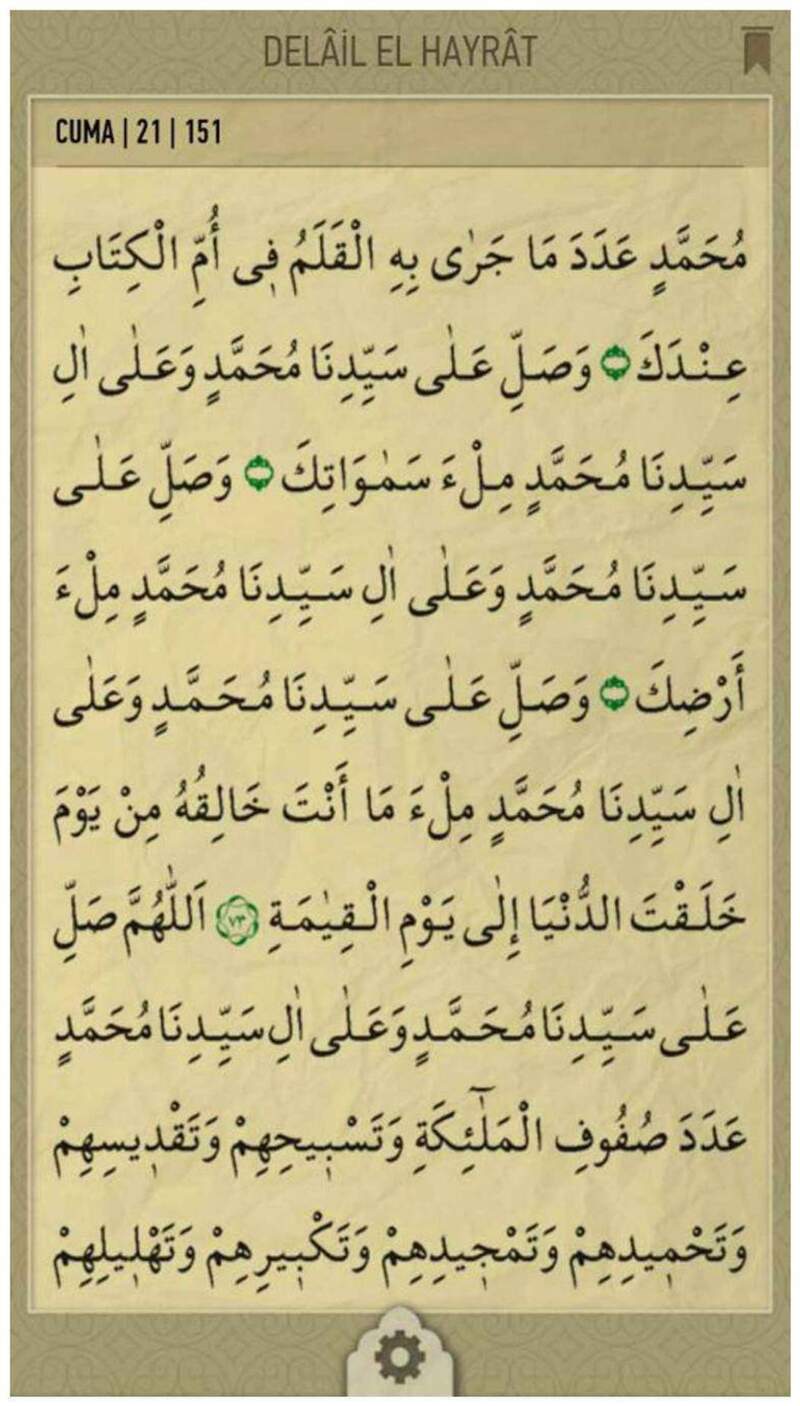 DELÂİL EL HAYRÂT
CUMA | 21 | 151
مُحَمَّدٍ عَدَدَ مَا جَرٰى بِهِ الْقَلَمُ فٖى أُمِّ الْكِتَابِ
عِنْدَكَ وَصَلِّ عَلٰى سَيِّدِنَا مُحَمَّدٍ وَعَلٰى اٰلِ
سَيِّدِنَا مُحَمَّدٍ مِلْءَ سَمٰوَاتِكَ وَصَلِّ عَلٰى
سَيِّدِنَا مُحَمَّدٍ وَعَلٰى اٰلِ سَيِّدِنَا مُحَمَّدٍ مِلْءَ
أَرْضِكَ وَصَلِّ عَلٰى سَيِّدِنَا مُحَمَّدٍ وَعَلٰى
اٰلِ سَيِّدِنَا مُحَمَّدٍ مِلْءَ مَا أَنْتَ خَالِقُهُ مِنْ يَوْمَ
خَلَقْتَ الدُّنْيَا إِلٰى يَوْمِ الْقِيٰمَةِ ٧٣ اَللّٰهُمَّ صَلِّ
عَلٰى سَيِّدِنَا مُحَمَّدٍ وَعَلٰى اٰلِ سَيِّدِنَا مُحَمَّدٍ
عَدَدَ صُفُوفِ الْمَلٰٓئِكَةِ وَتَسْبٖيحِهِمْ وَتَقْدٖيسِهِمْ
وَتَحْمٖيدِهِمْ وَتَمْجٖيدِهِمْ وَتَكْبٖيرِهِمْ وَتَهْلٖيلِهِمْ